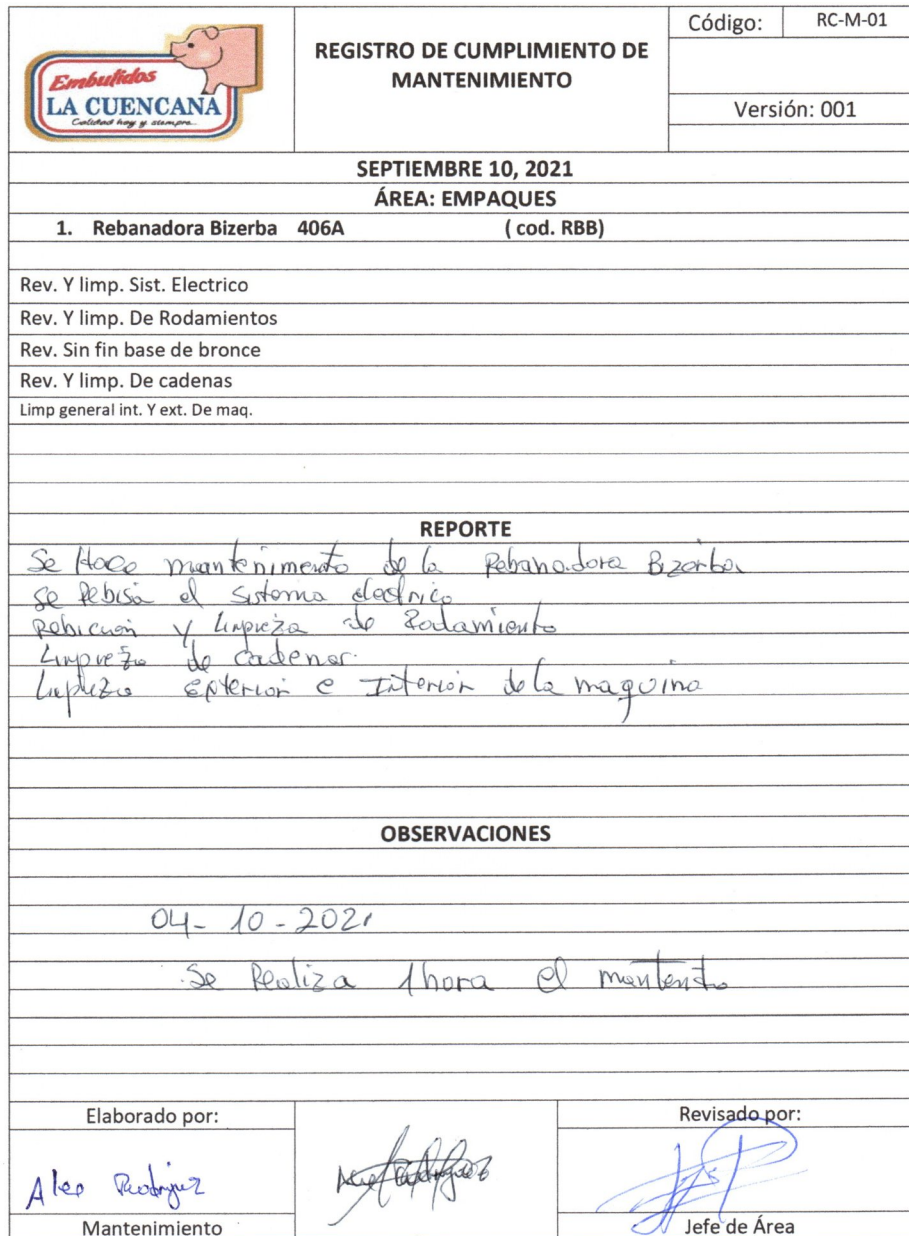 Embutidos
LA CUENCANA
Calidad hoy y siempre...
REGISTRO DE CUMPLIMIENTO DE
MANTENIMIENTO
Código: RC-M-01
Versión: 001
SEPTIEMBRE 10, 2021
ÁREA: EMPAQUES
1. Rebanadora Bizerba 406A ( cod. RBB)
Rev. Y limp. Sist. Electrico
Rev. Y limp. De Rodamientos
Rev. Sin fin base de bronce
Rev. Y limp. De cadenas
Limp general int. Y ext. De maq.
REPORTE
Se Hace mantenimento de la Rebanadora Bizerba
Se Rebisa el sistema electrico
Rebicion y Limpieza de Rodamiento
Limpieza de cadenas.
Limpieza Exterior e Interior de la maquina
OBSERVACIONES
04-10-2021
Se Realiza 1 hora el
Elaborado por:
Revisado por:
Alex Rodriguez
Mantenimiento
Jefe de Área